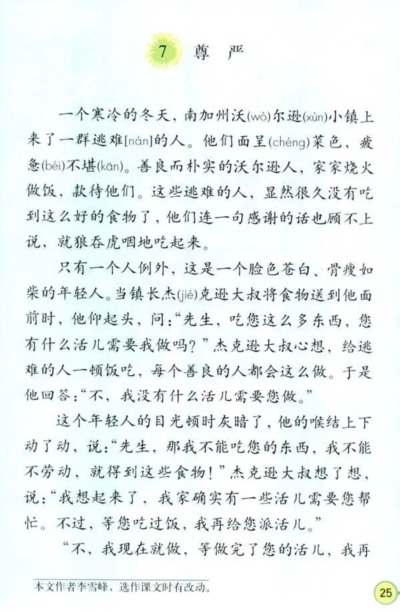 7 尊严
一个寒冷的冬天，南加州沃(wò)尔逊(xùn)小镇上
来了一群逃难[nàn]的人。他们面呈(chéng)菜色，疲
惫(bèi)不堪(kān)。善良而朴实的沃尔逊人，家家烧火
做饭，款待他们。这些逃难的人，显然很久没有吃
到这么好的食物了，他们连一句感谢的话也顾不上
说，就狼吞虎咽地吃起来。
只有一个人例外，这是一个脸色苍白、骨瘦如
柴的年轻人。当镇长杰(jié)克逊大叔将食物送到他面
前时，他仰起头，问：“先生，吃您这么多东西，您
有什么活儿需要我做吗？”杰克逊大叔心想，给逃
难的人一顿饭吃，每个善良的人都会这么做。于是
他回答：“不，我没有什么活儿需要您做。”
这个年轻人的目光顿时灰暗了，他的喉结上下
动了动，说：“先生，那我不能吃您的东西，我不能
不劳动，就得到这些食物！”杰克逊大叔想了想，
说：“我想起来了，我家确实有一些活儿需要您帮
忙。不过，等您吃过饭，我再给您派活儿。”
“不，我现在就做，等做完了您的活儿，我再
本文作者李雪峰，选作课文时有改动。
25